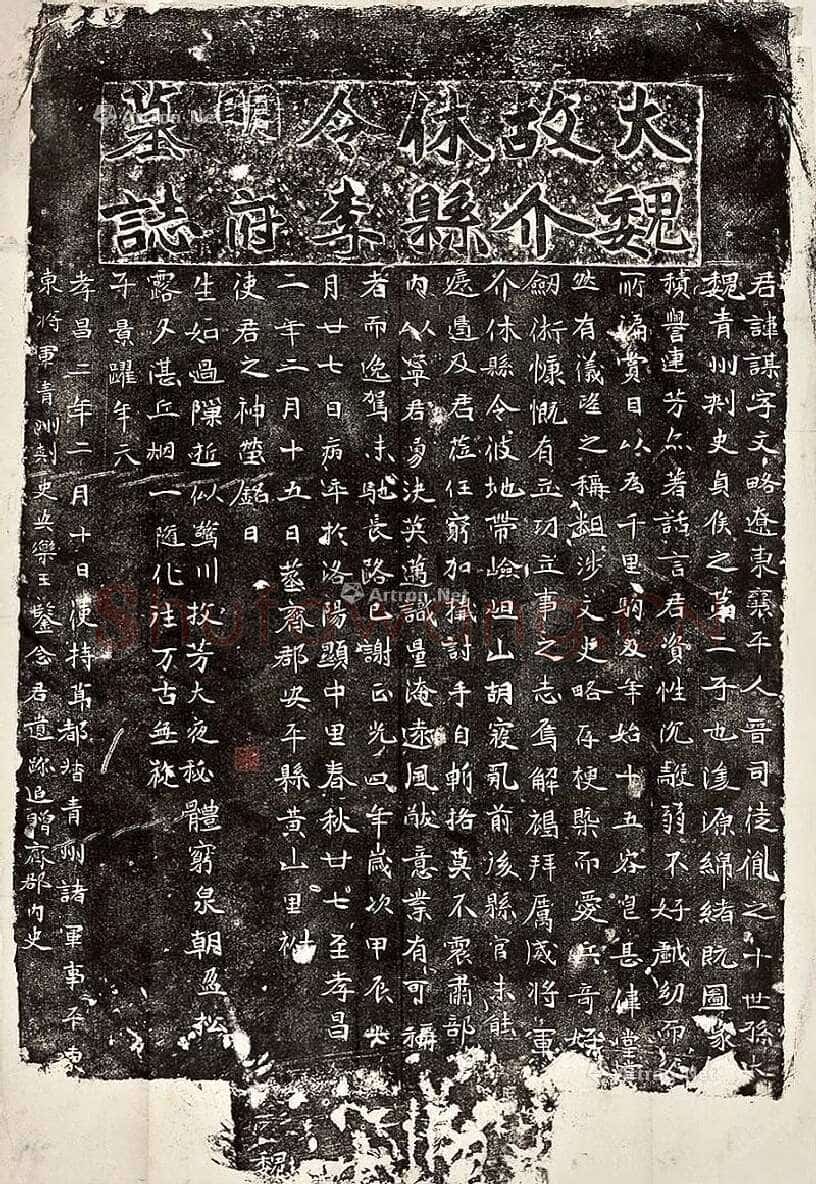 大魏
故介
休縣
令李
明府
墓誌
君諱謀字文略遼東襄平人晉司徒胤之十世孫大
魏青州刺史貞侯之第二子也濬源綿緒既圖家
積譽連芳亦著話言君資性沉毅弱不好戲幼而
所識賞目以為千里駒及年始十五容皃甚偉堂
然有儀望之稱粗涉文史略存梗槩而愛兵奇好
劒術慷慨有立功立事之志焉解褐拜厲威將軍
介休縣令彼地帶嶮岨山胡寇亂前後縣官未能
及君莅任窮加擒討手自斬格莫不震肅部
內以寧君勇決英邁識量淹遠風猷意業有可稱
者而逸駕未馳長路已謝正光四年歲次甲辰
月廿七日病卒於洛陽顯中里春秋廿七至孝昌
二年二月十五日葬齊郡安平縣黃山里祔
使君之神塋銘曰
生如過隟逝似驚川投芳大夜秘體窮泉朝盈松
露夕湛丘烟一隨化往万古無旋
子景躍年六
孝昌二年二月十日使持節都督青州諸軍事平東
東將軍青州刺史安樂王鑒念君遺跡追贈齊郡內史
魏
Artron.Net
Artron.Net
Artron.Net